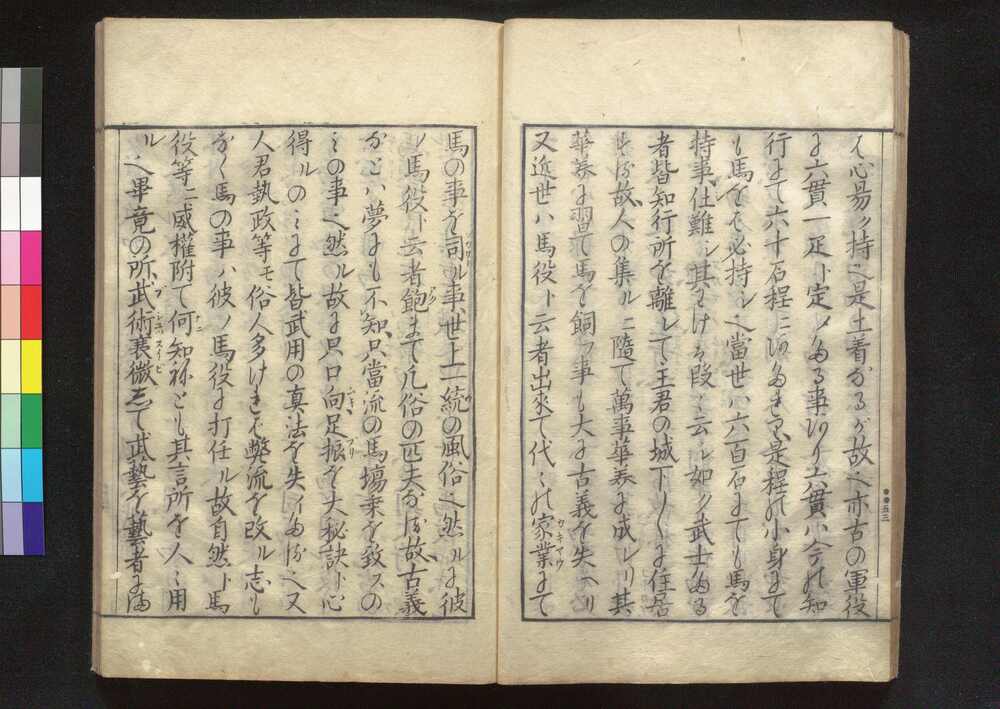 は心易ク持也是土着なるが故也亦古の軍役
に六貫一疋ト定メたる事あり六貫ハ今の知
行にて六十石程に
も馬をば必持シ也當世ハ六百石にても馬を
持事仕難シ其わけは段々云シ如ク武士たる
者皆知行所を離レて王君の城下々々に住居
する故人の集ルに隨て萬事華美に成レリ其
華美に習て馬を飼フ事も大に古義を失へり
又近世ハ馬役ト云者出來て代々の家業にて
馬の事を司ル事世上一統の風俗也然ルに彼
ノ馬役ト云者飽まで凡俗の匹夫なる故古義
などハ夢にも不知只當流の馬塲乗を致スの
ミの事也然ル故に只口向足振を大秘訣ト心
得ルのミにて皆武用の真法を失イたる也又
人君執政等モ俗人多けれバ弊流を改ル志も
なく馬の事ハ彼ノ馬役に打任ル故自然ト馬
役等ニ威權附て何知ねども其言所を人々用
ル也畢竟の所武術衰微して武藝を藝者にま